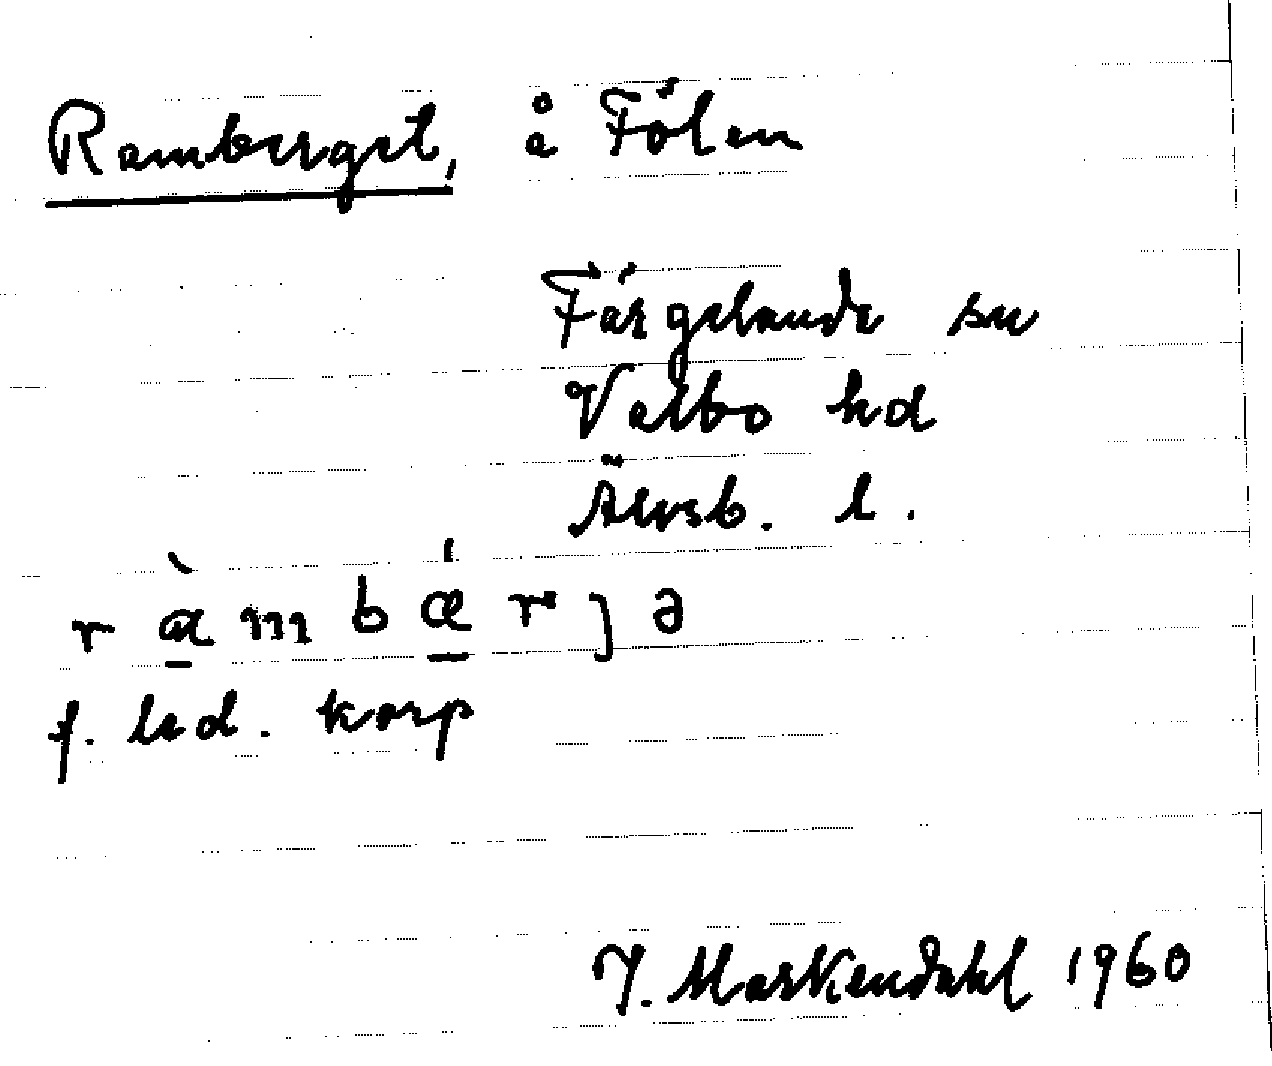 Ramberget, å Fölen
Färgelanda sn
Valbo hd
Älvsb. l.
r à m b ǽ r j ə
f. led. korp
J. Markendahl 1960